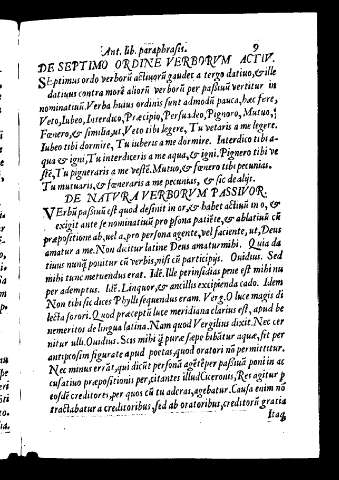 Ant. lib. paraphrasis. 9
DE SEPTIMO ORDINE VERBORVM ACTIV.
SEptimus ordo verborũ actiuorũ gaudet a tergo datiuo, & ille
datiuus contra morẽ aliorũ verborũ per passiuũ vertitur in
nominatiuũ. Verba huius ordinis sunt admodũ pauca, hæc fere,
Veto, Iubeo, Interdico, Præcipio, Persuadeo, Pignoro, Mutuo,
Fœnero, & similia, ut Veto tibi legere, Tu vetaris a me legere.
Iubeo tibi dormire, Tu iuberis a me dormire. Interdico tibi a-
qua & igni, Tu interdiceris a me aqua, & igni. Pignero tibi ve
stẽ, Tu pigneraris a me vestẽ. Mutuo, & fœnero tibi pecunias.
Tu mutuaris, & fœneraris a me pecunias, & sic de alijs.
DE NATVRA VERBORVM PASSIVOR.
VErbũ passiuũ est quod desinit in or, & habet actiuũ in o, &
exigit ante se nominatiuũ pro psona patiẽte, & ablatiuũ cũ
præpositione ab, vel a, pro persona agente, vel faciente, ut, Deus
amatur a me. Non dicitur latine Deus amatur mihi. Quia da
tiuus nunq̃ ponitur cũ verbis, nisi cũ participijs. Ouidius. Sed
mihi tunc metuendus erat. Idẽ. Ille per insidias pene est mihi nu
per ademptus. Idẽ. Linquor, & ancillis excipienda cado. Idem
Non tibi sic dices Phylli sequendus eram. Verg. O luce magis di
lecta sorori. Quod præceptũ luce meridiana clarius est, apud be
nemeritos de lingua latina. Nam quod Vergilius dixit. Nec cer
nitur ulli. Ouidius. Scis mihi q̃ puræ sæpe bibãtur aquæ, fit per
antiprosim figurate apud poetas, quod oratori nõ permittitur.
Nec minus errãt, qui dicũt personã agẽtẽ per passiuũ poni in ac
cusatiuo præpositionis per, citantes illud Ciceronis, Res agitur p
eosdẽ creditores, per quos cũ tu aderas, agebatur. Causa enim nõ
tractabatur a creditoribus, sed ab oratoribus, creditorũ gratia
Itaq̃